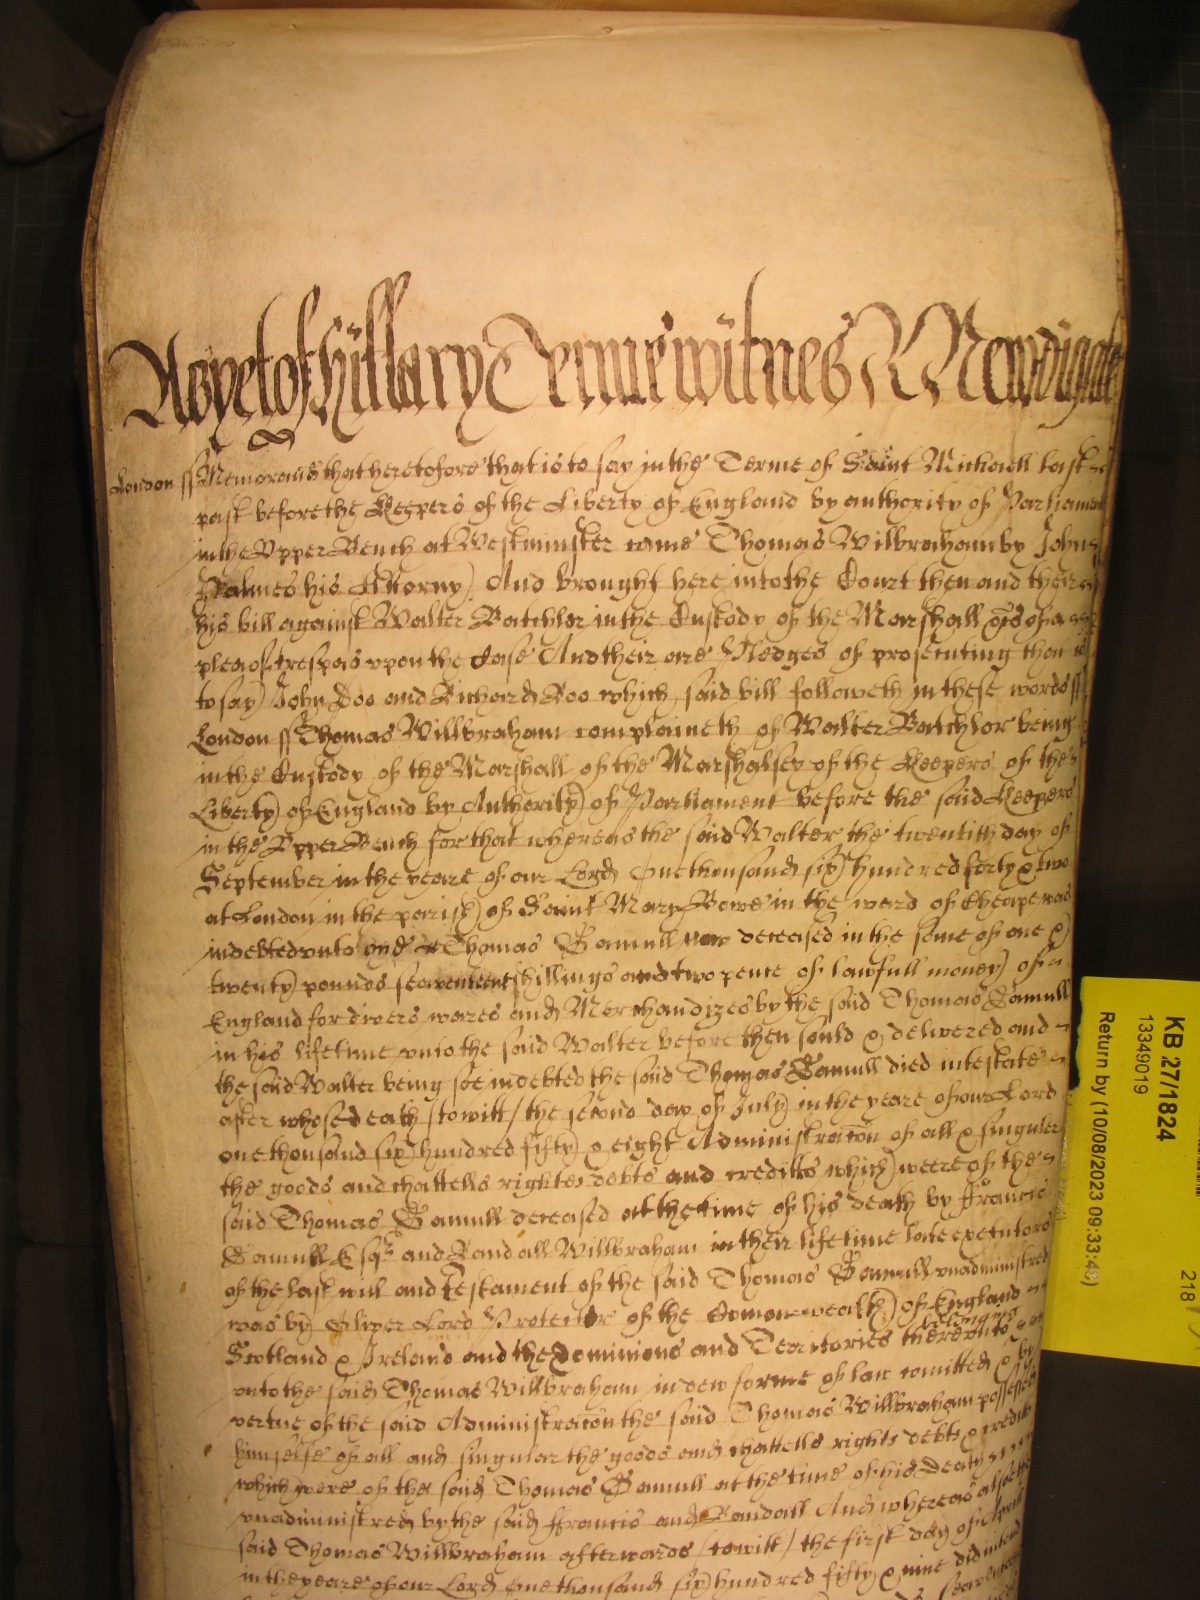 As yet of Hillary Terme witnes R Newdigate
London ss Memorand that heretofore that is to say in the Terme of Saint Michaell last
past before the Keepers of the Liberty of England by authority of Parliament
in the Upper Bench at Westminster came Thomas Wilbraham by John
Palmes his Attorny And brought here into the Court then and their
his bill against Walter Batchlor in the Custody of the Marshall &c of a
plea of trespas upon the Case And their are Pledges of prosecuting that is
to say John Doo and Richard Roo which said bill followeth in these words ss
London ss Thomas Willbraham complaineth of Walter Batchlor being
in the Custody of the Marshall of the Marshalsey of the Keepers of the
Liberty of England by Authority of Parliament before the said Keepers
in the Upper Bench for that whereas the said Walter the twentith day of
September in the yeare of our Lord One thousand six hundred forty & two
at London in the parish of Saint Mary Bowe in the ward of Cheape was
indebted unto one Thomas Gamull now deceased in the some of one &
twenty pounds seaventeene shillings and two pence of lawfull money of
England for divers wares and Merchandizes by the said Thomas Gamull
in his lifetime unto the said Walter before then sould & delivered and
the said Walter being soe indebted the said Thomas Gamull died intestate
after whose death /to witt/ the second day of July in the yeare of our Lord
one thousand six hundred fifty & eight Administracon of all & singuler
the goods and chattells rightes debts and creditts which weere of the
said Thomas Gamull deceased at the time of his death by Francis
Gamull Esqr and Randall Willbraham in their lifetime late executors
of the last will and testament of the said Thomas Gamull unadministred
was by Oliver Lord Protector of the Comonwealth of England
Scotland & Ireland and the Dominions and Territories thereunto belonging
unto the said Thomas Willbraham in dew forme of law comitted & by
vertue of the said Administracon the said Thomas Willbraham possessed
himselfe of all and singular the goods and chattells rights debts & creditts
which were of the said Thomas Gamull at the time of his death
unadministred by the said Francis and Randall And whereas alsoe the
said Thomas Willbraham afterwards /to witt/ the first day of Aprill
in the yeare of our Lord One thousand six hundred fifty & nine did intend
KB 27/1824
13349019
Return by (10/08/2023 09:33:48)
218